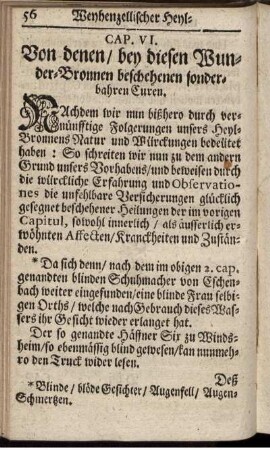 56 Weyhenzellischer Heyl-
CAP. VI.
Von denen / bey diesen Wun-
der-Bronnen beschehenen sonder-
bahren Curen.
NAchdem wir nun bißhero durch ver-
nünfftige Folgerungen unsers Heyl-
Bronnens Natur und Würckungen bedeütet
haben : So schreiten wir nun zu dem andern
Grund unsers Vorhabens / und beweisen durch
die würckliche Erfahrung und Observatio-
nes die unfehlbare Versicherungen glücklich
gesegnet beschehener Heilungen der im vorigen
Capitul, sowohl innerlich / als äusserlich er-
wöhnten Affecten / Kranckheiten und Zustän-
den.
* Da sich denn / nach dem im obigen 2. cap.
genandten blinden Schuhmacher von Eschen-
bach weiter eingefunden / eine blinde Frau selbi-
gen Orths / welche nach Gebrauch dieses Was-
sers ihr Gesicht wieder erlanget hat.
Der so genandte Häffner Six zu Winds-
heim / so ebenmässig blind gewesen / kan nunmeh-
ro den Truck wider lesen.
Deß
* Blinde / blöde Gesichter / Augenfell / Augen-
Schmertzen.